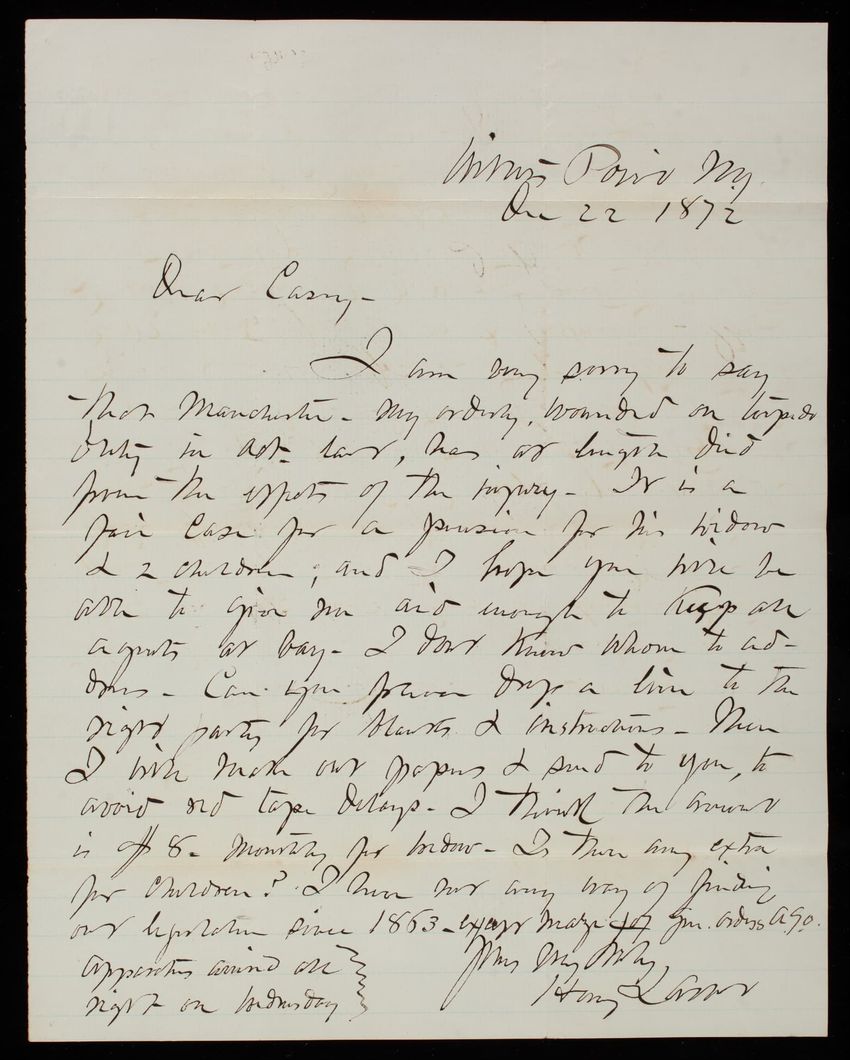 Willets Point N.Y.
Dec 22 1872
Dear Casey -
I am very sorry to say
that Manchester - my orderly, wounded on torpedo
duty in Oct. last, has at length died
from the effects of the injury - It is a
fair case for a pension for his widow
& 2 children; and I hope you will be
able to give me aid enough to keep all
agents at bay - I dont know whom to ad-
dress - Can you please drop a line to the
right party for blanks & instructions - Then
I will make out papers & send to you, to
avoid red tape delays - I think the amount
is $8 - monthly for widow - Is there any extra
for children? I have not any way of finding
out legislation since 1863 - except Gen. orders A.G.O.
Yours very truly
Henry L Abbot
Apparatus arrived all
right on Wednesday